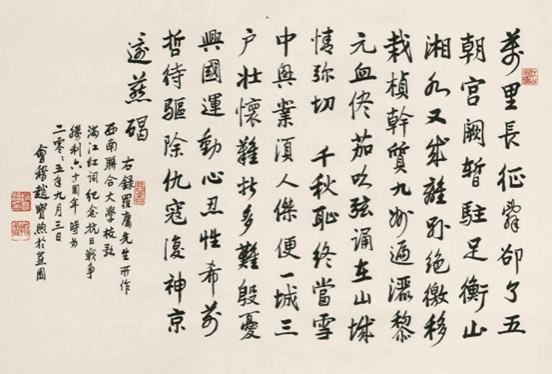 萬里長征辭卻了五
朝宮闕暫駐足衡山
湘水又成離別絕徼移
栽楨幹質九州遍灑黎
元血侭茄吹弦誦在山城
情弥切 千秋恥終當雪
中興業須人傑便一城三
户壯懷難折多難殷憂
興國運動心忍性希前
哲待驅除仇寇復神京
還燕碣
右錄羅庸先生所作
西南聯合大學校歌
滿江红詞紀念抗日戰争
勝利六十周年 時为
二零〻五年九月三日
會稽趙寶煦於蓝園